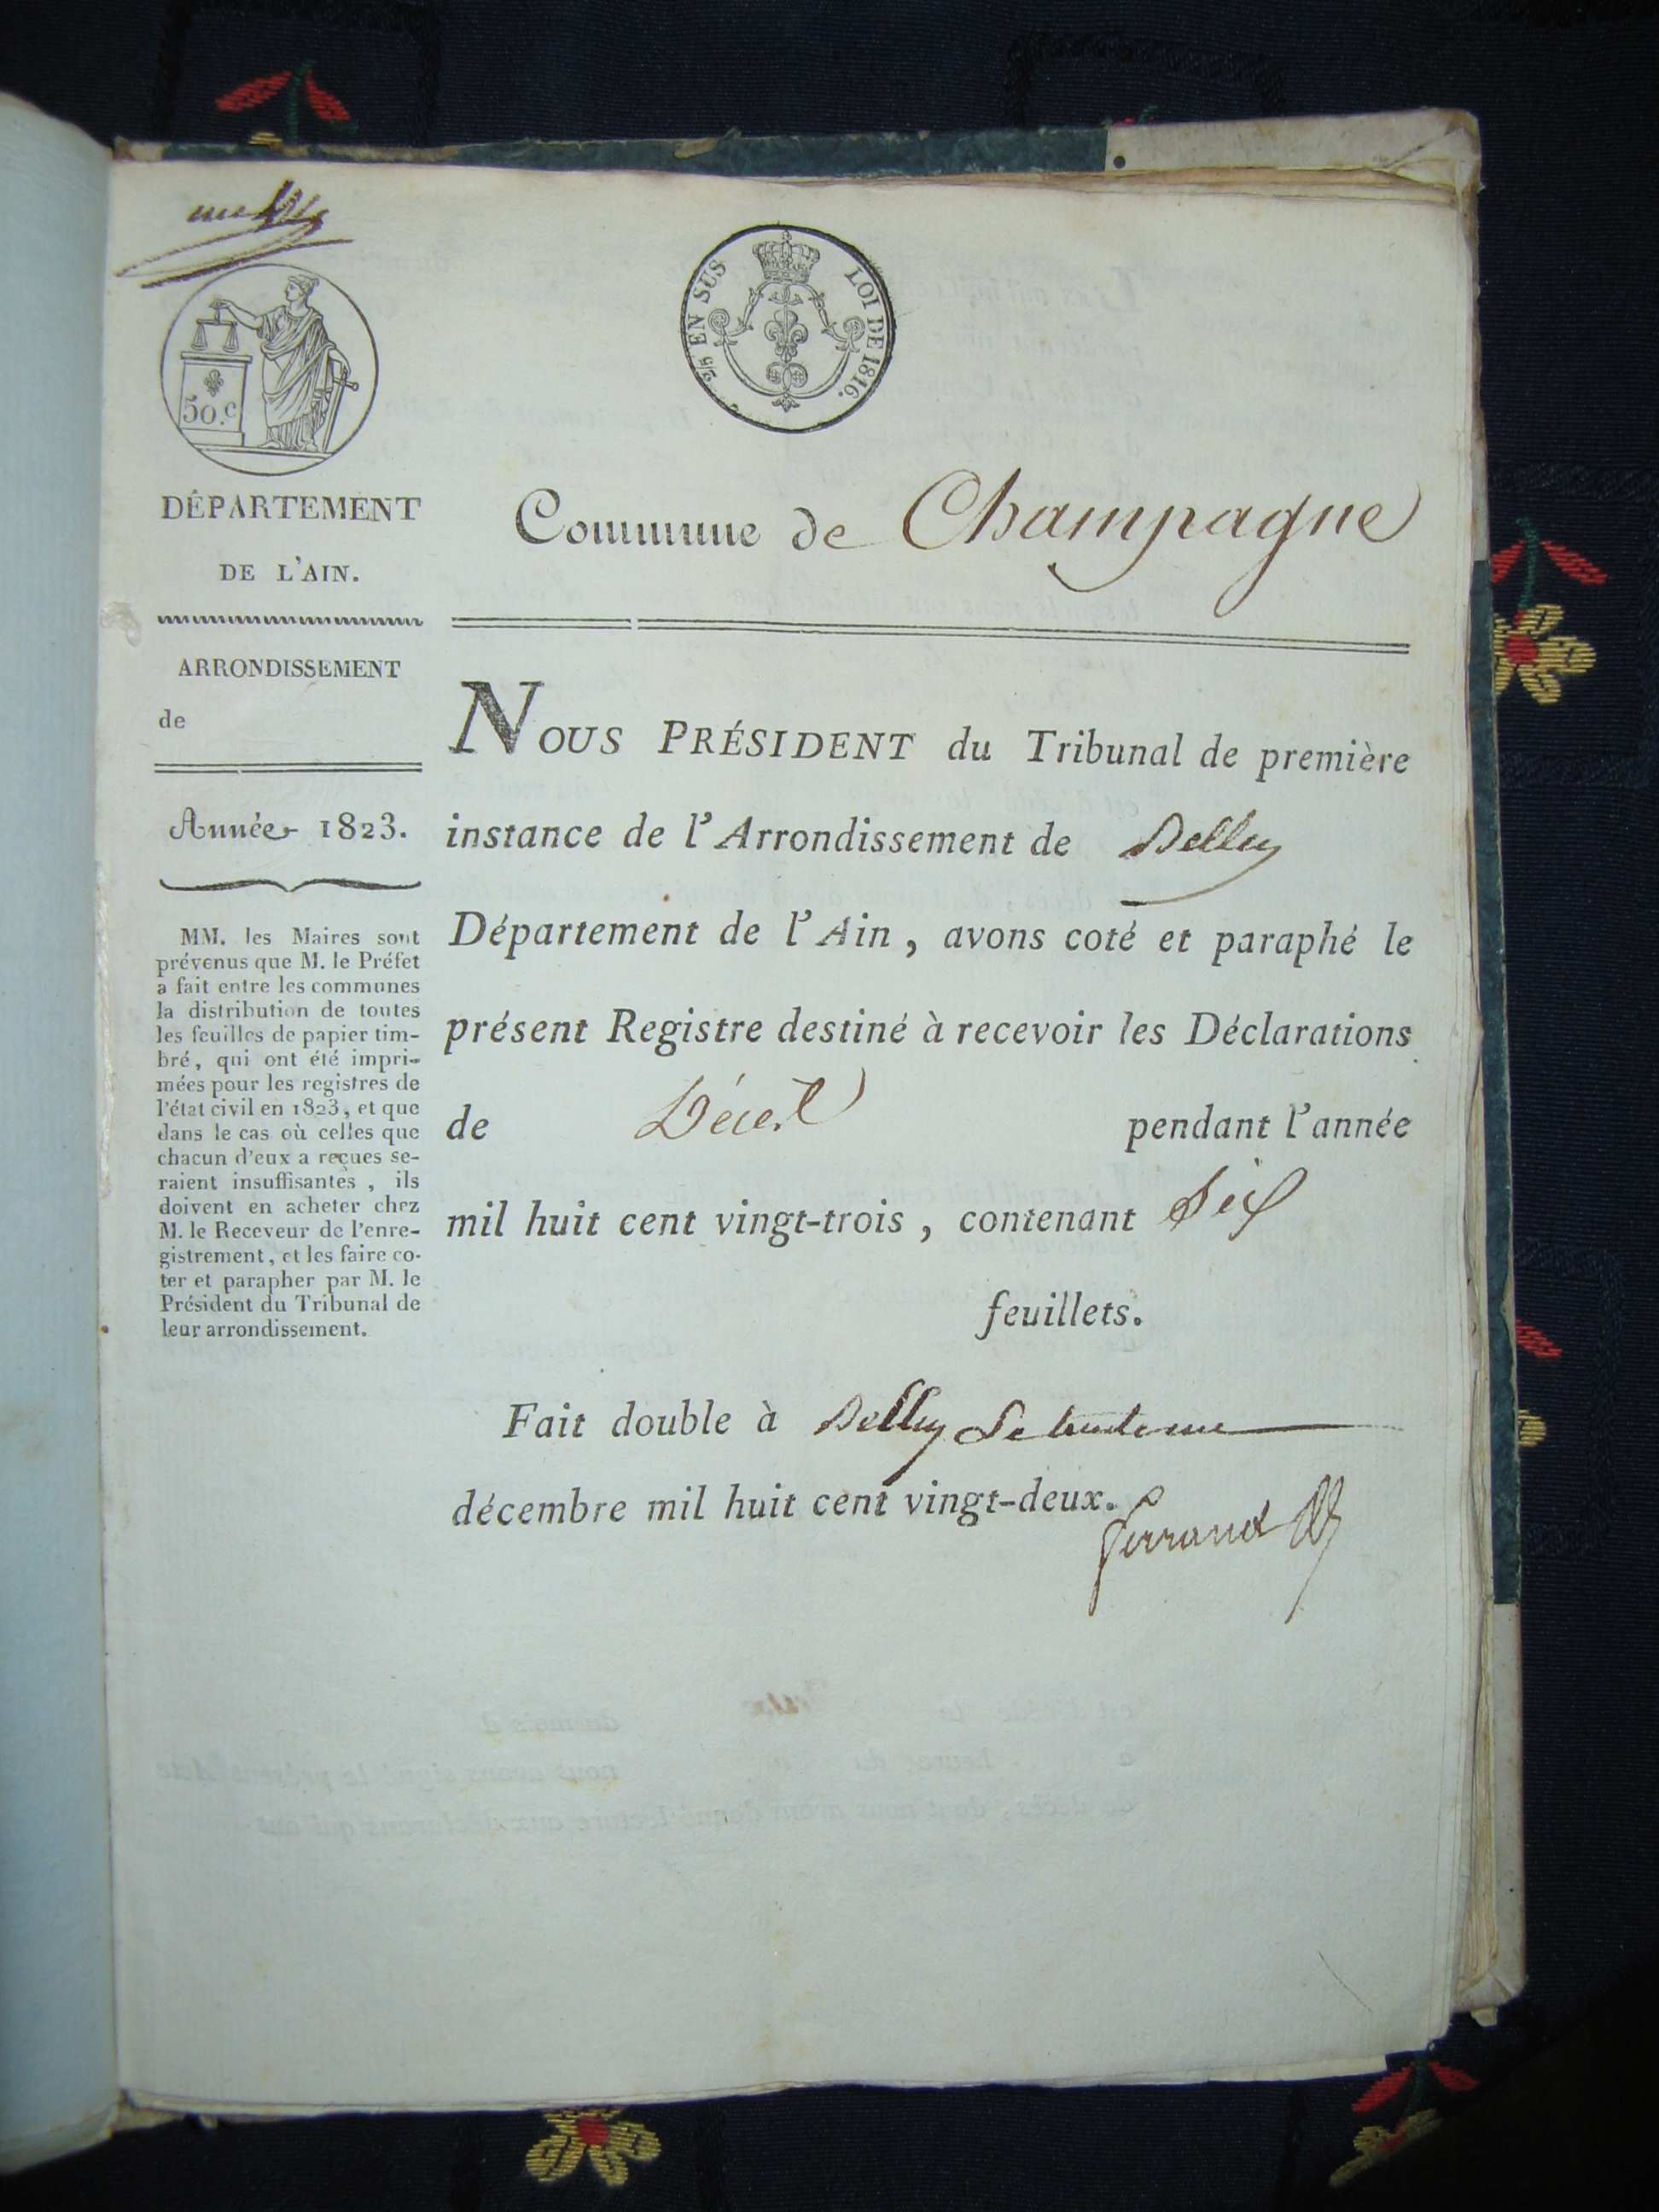 50.c
2/5 EN SUS LOI DE 1816.
DÉPARTEMENT
DE L'AIN.
ARRONDISSEMENT
de
Année 1823.
MM. les Maires sont
prévenus que M. le Préfet
a fait entre les communes
la distribution de toutes
les feuilles de papier tim-
bré, qui ont été impri-
mées pour les registres de
l'état civil en 1823, et que
dans le cas où celles que
chacun d'eux a reçues se-
raient insuffisantes, ils
doivent en acheter chez
M. le Receveur de l'enre-
gistrement, et les faire co-
ter et parapher par M. le
Président du Tribunal de
leur arrondissement.
Commune de Champagne
NOUS PRÉSIDENT du Tribunal de première
instance de l'Arrondissement de Belley
Département de l'Ain, avons coté et paraphé le
présent Registre destiné à recevoir les Déclarations
de Décès pendant l'année
mil huit cent vingt-trois, contenant
feuillets.
Fait double à Belley Le
décembre mil huit cent vingt-deux.